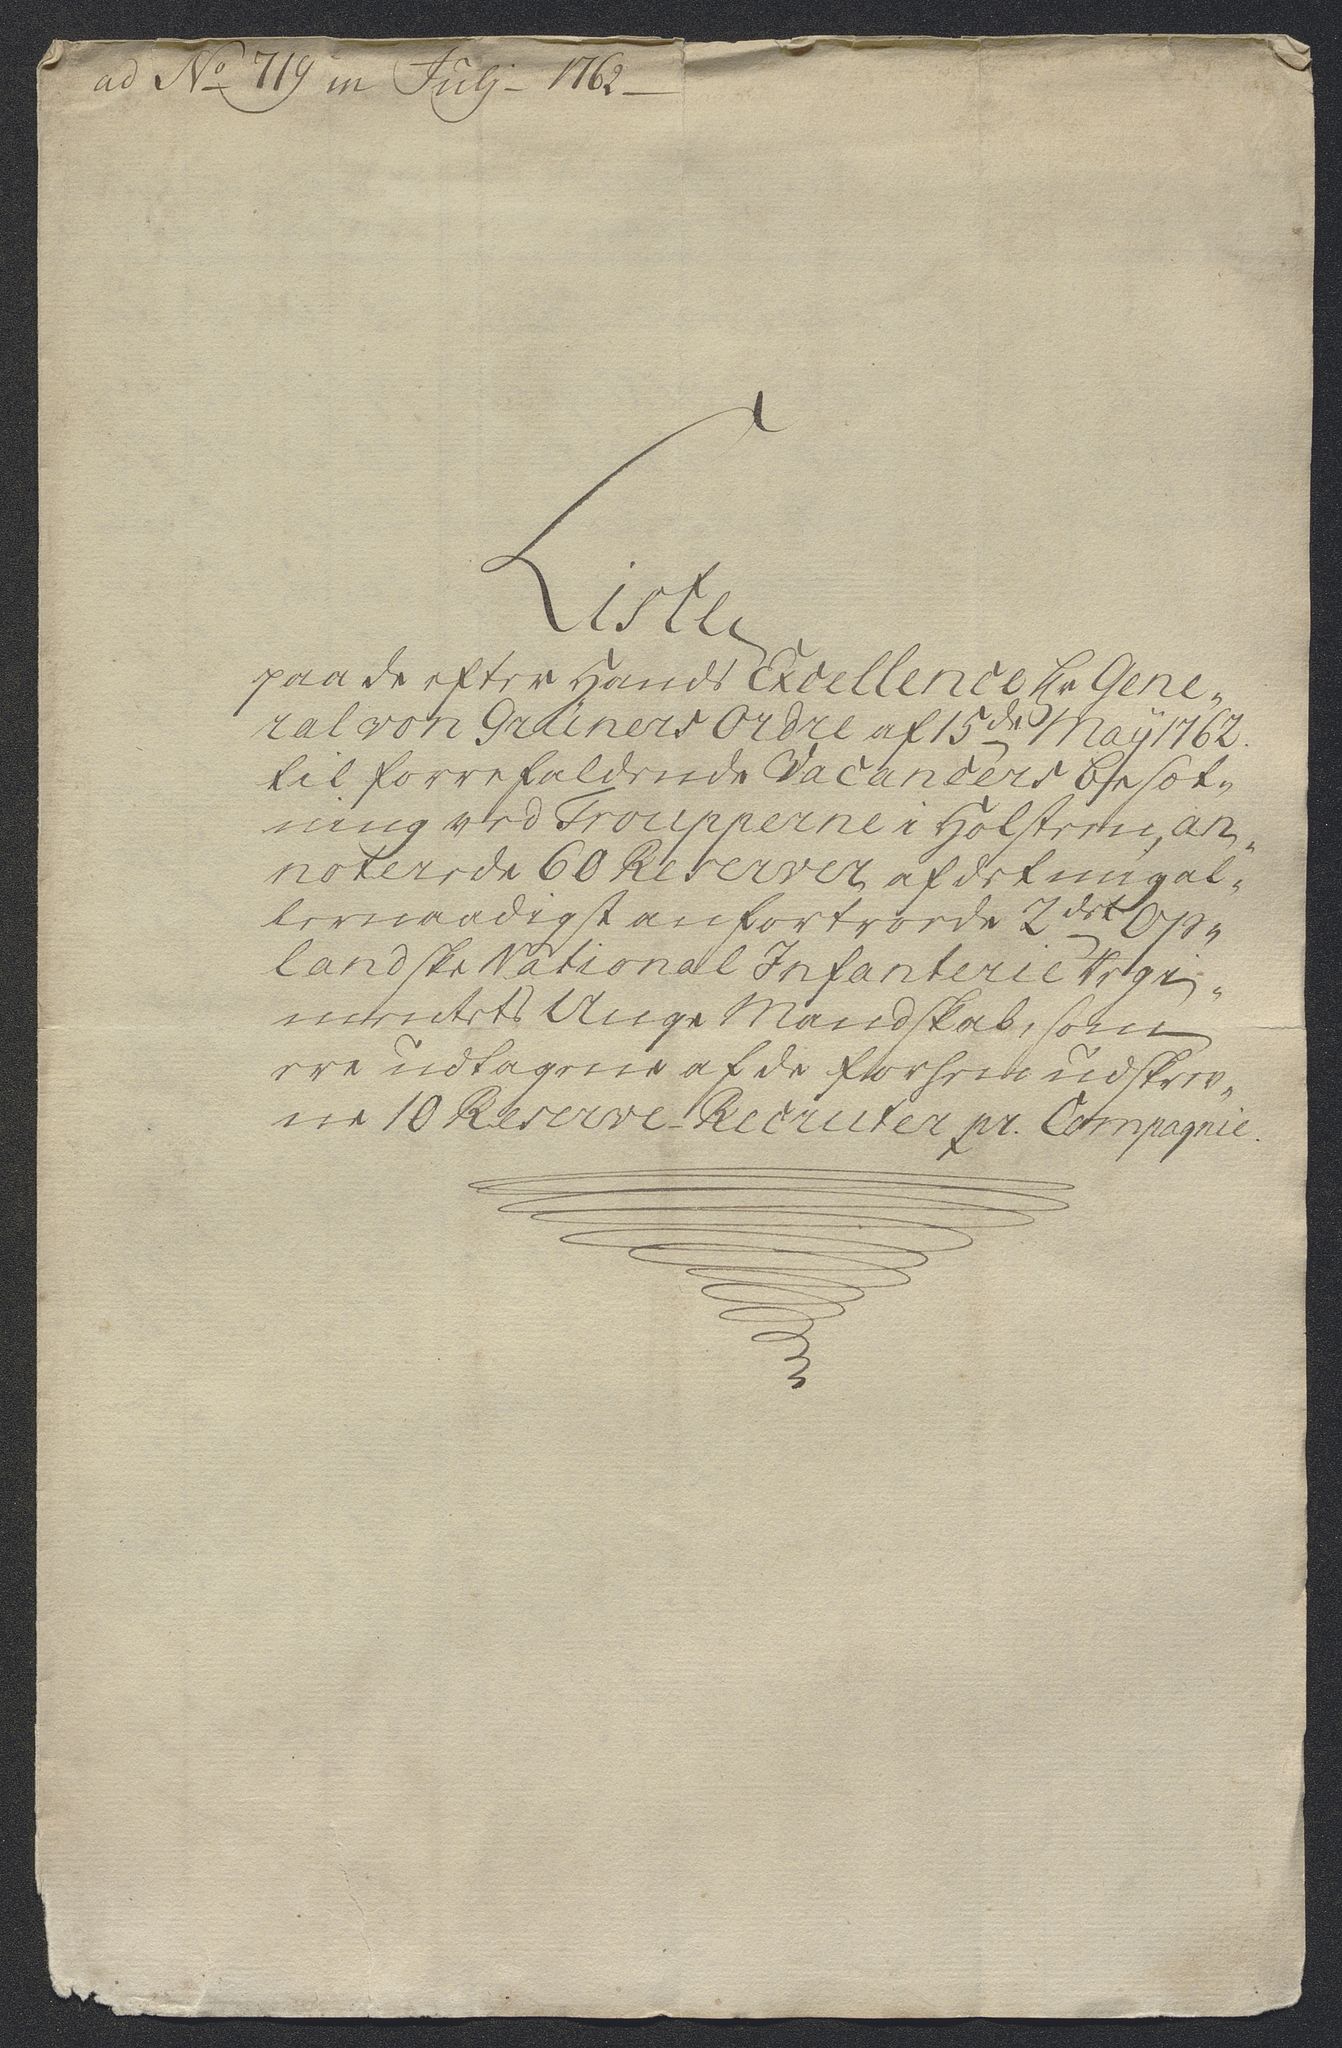 ad No 719 in Julj - 1762 -
Liste
paa de efter Hands Excellence Hr Gene-
ral von Grüners Ordre af 15de May 1762.
til forrefaldende Vacancers Besæt-
ning ved Troupperne i Holsteen, an-
noterede 60 Reserver, af det mig al-
lernaadigst anfortroede 2det Op-
landske National Infanterie Regi-
mentets Unge Mandskab, som
ere udtagene af de forhen udskrev-
ne 10 Reserve-Recruter pr. Compagnie.